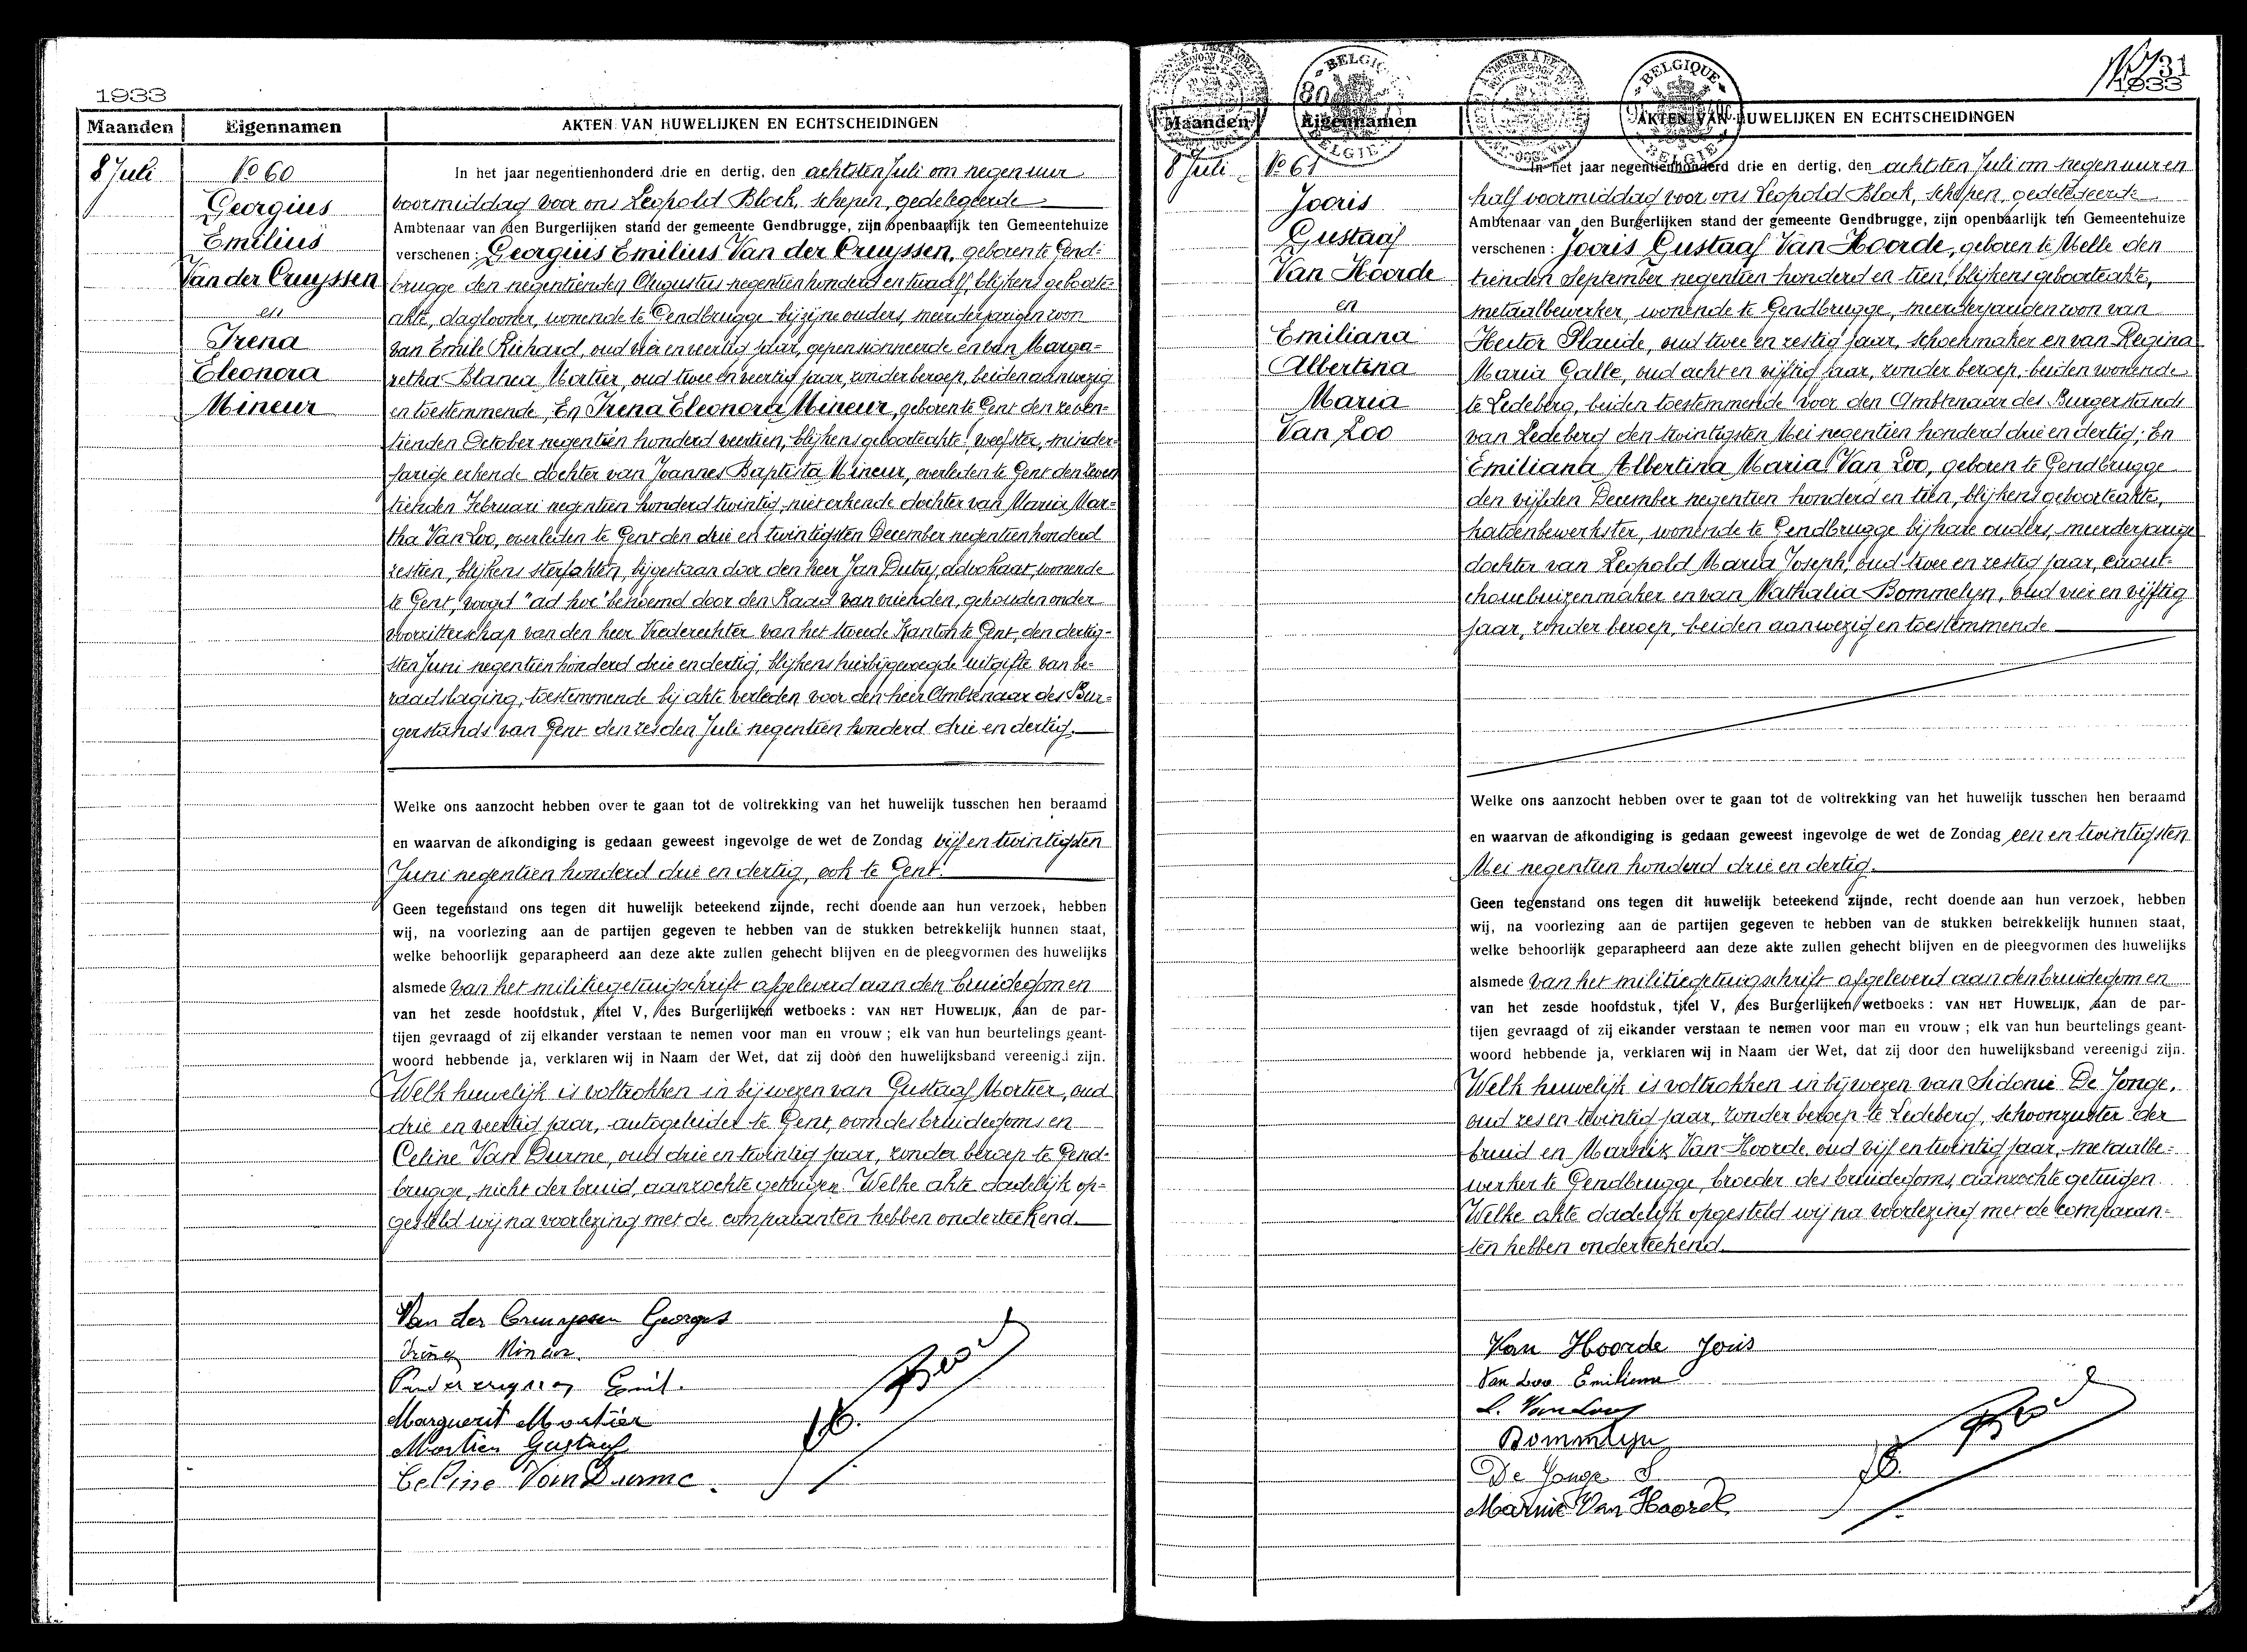 1933
Maanden Eigennamen AKTEN VAN HUWELIJKEN EN ECHTSCHEIDINGEN
8 Juli
No 60
Georgius
Emilius
Van der Cruyssen
en
Irena
Eleonora
Mineur
In het jaar negentienhonderd drie en dertig, den achtsten Juli om negen uur
voormiddag voor ons Leopold Block, schepen, gedelegeerde
Ambtenaar van den Burgerlijken stand der gemeente Gendbrugge, zijn openbaarlijk ten Gemeentehuize
verschenen : Georgius Emilius Van der Cruyssen, geboren te Gend-
brugge den negentienden Augustus negentien honderd en twaalf, blijkens geboorte-
akte, daglooner, wonende te Gendbrugge bij zijne ouders, meerderjarigen zoon
van Emile Richard, oud vier en veertig jaar, gepensionneerde en van Marga=
retha Blanca Mortier, oud twee en veertig jaar, zonder beroep, beiden aanwezig
en toestemmende, En Irena Eleonora Mineur, geboren te Gent den zeven=
tienden October negentien honderd veertien, blijkens geboorteakte, weefster, minder=
jarige erkende dochter van Joannes Baptista Mineur, overleden te Gent den zeven
tienden Februari negentien honderd twintig, niet erkende dochter van Maria Mar=
tha Van Loo, overleden te Gent den drie en twintigsten December negentienhonderd
zestien, blijkens sterfakten, bijgestaan door den heer Jan Dutry, advokaat, wonende
te Gent, voogd "ad hoc" benoemd door den Raad van vrienden, gehouden onder
voorzitterschap van den heer Vrederechter van het tweede Kanton te Gent, den dertig-
sten Juni negentien honderd drie en dertig, blijkens hierbijgevoegde uitgifte van be-
raadslaging, toestemmende bij akte verleden voor den heer Ambtenaar des Bur=
gerstands van Gent den zesden Juli negentien honderd drie en dertig.
Welke ons aanzocht hebben over te gaan tot de voltrekking van het huwelijk tusschen hen beraamd
en waarvan de afkondiging is gedaan geweest ingevolge de wet de Zondag vijf en twintigsten
Juni negentien honderd drie en dertig, ook te Gent.
Geen tegenstand ons tegen dit huwelijk beteekend zijnde, recht doende aan hun verzoek, hebben
wij, na voorlezing aan de partijen gegeven te hebben van de stukken betrekkelijk hunnen staat,
welke behoorlijk geparapheerd aan deze akte zullen gehecht blijven en de pleegvormen des huwelijks
alsmede van het militiegetuigschrift afgeleverd aan den bruidegom en
van het zesde hoofdstuk, titel V, des Burgerlijken wetboeks : VAN HET HUWELIJK, aan de par-
tijen gevraagd of zij elkander verstaan te nemen voor man en vrouw ; elk van hun beurtelings geant-
woord hebbende ja, verklaren wij in Naam der Wet, dat zij door den huwelijksband vereenigd zijn.
Welk huwelijk is voltrokken in bijwezen van Gustaaf Mortier, oud
drie en veertig jaar, autogeleider te Gent, oom des bruidegoms en
Celine Van Durme, oud drie en twintig jaar, zonder beroep te Gend-
brugge, nicht der bruid, aanzochte getuigen. Welke akte dadelijk op=
gesteld wij na voorlezing met de comparanten hebben onderteekend.
Van der Cruyssen Georges
Irène Mineur
Vandercruyssen Emil.
Marguerit Mortier
Mortier Gustaaf
Celine Van Durme
31
1933
Maanden Eigennamen AKTEN VAN HUWELIJKEN EN ECHTSCHEIDINGEN
BELGIQUE
BELGIE
8 Juli
No 61
Jooris
Gustaaf
Van Hoorde
en
Emiliana
Albertina
Maria
Van Loo
In het jaar negentienhonderd drie en dertig, den achtsten Juli om negen uur en
half voormiddag voor ons Leopold Block, schepen, gedelegeerde
Ambtenaar van den Burgerlijken stand der gemeente Gendbrugge, zijn openbaarlijk ten Gemeentehuize
verschenen : Jooris Gustaaf Van Hoorde, geboren te Melle den
tienden September negentien honderd en tien, blijkens geboorteakte,
metaalbewerker, wonende te Gendbrugge, meerderjariden zoon van
Hector Placide, oud twee en zestig jaar, schoenmaker en van Regina
Maria Galle, oud acht en vijftig jaar, zonder beroep, beiden wonende
te Ledeberg, beiden toestemmende voor den Ambtenaar des Burgerstands
van Ledeberg den twintigsten Mei negentien honderd drie en dertig; En
Emiliana Albertina Maria Van Loo, geboren te Gendbrugge
den vijfden December negentien honderd en tien, blijkens geboorteakte,
katoenbewerkster, wonende te Gendbrugge bij hare ouders, meerderjarige
dochter van Leopold Maria Joseph, oud twee en zestig jaar, caout-
choucbuizenmaker en van Nathalia Bommelyn, oud vier en vijftig
jaar, zonder beroep, beiden aanwezig en toestemmende
Welke ons aanzocht hebben over te gaan tot de voltrekking van het huwelijk tusschen hen beraamd
en waarvan de afkondiging is gedaan geweest ingevolge de wet de Zondag een en twintigsten
Mei negentien honderd drie en dertig.
Geen tegenstand ons tegen dit huwelijk beteekend zijnde, recht doende aan hun verzoek, hebben
wij, na voorlezing aan de partijen gegeven te hebben van de stukken betrekkelijk hunnen staat,
welke behoorlijk geparapheerd aan deze akte zullen gehecht blijven en de pleegvormen des huwelijks
alsmede van het militiegetuigschrift afgeleverd aan den bruidegom en
van het zesde hoofdstuk, titel V, des Burgerlijken wetboeks : VAN HET HUWELIJK, aan de par-
tijen gevraagd of zij elkander verstaan te nemen voor man en vrouw ; elk van hun beurtelings geant-
woord hebbende ja, verklaren wij in Naam der Wet, dat zij door den huwelijksband vereenigd zijn.
Welk huwelijk is voltrokken in bijwezen van Sidonie De Jonge,
oud zes en twintig jaar, zonder beroep te Ledeberg, schoonzuster der
bruid en Marnix Van Hoorde, oud vijf en twintig jaar, metaalbe=
werker te Gendbrugge, broeder des bruidegoms, aanzochte getuigen
Welke akte dadelijk opgesteld wij na voorlezing met de comparan=
ten hebben onderteekend.
Van Hoorde Joris
Van Loo Emiliena
L. Van Loo
Bommelyn
De Jonge S
Marnix Van Hoorde